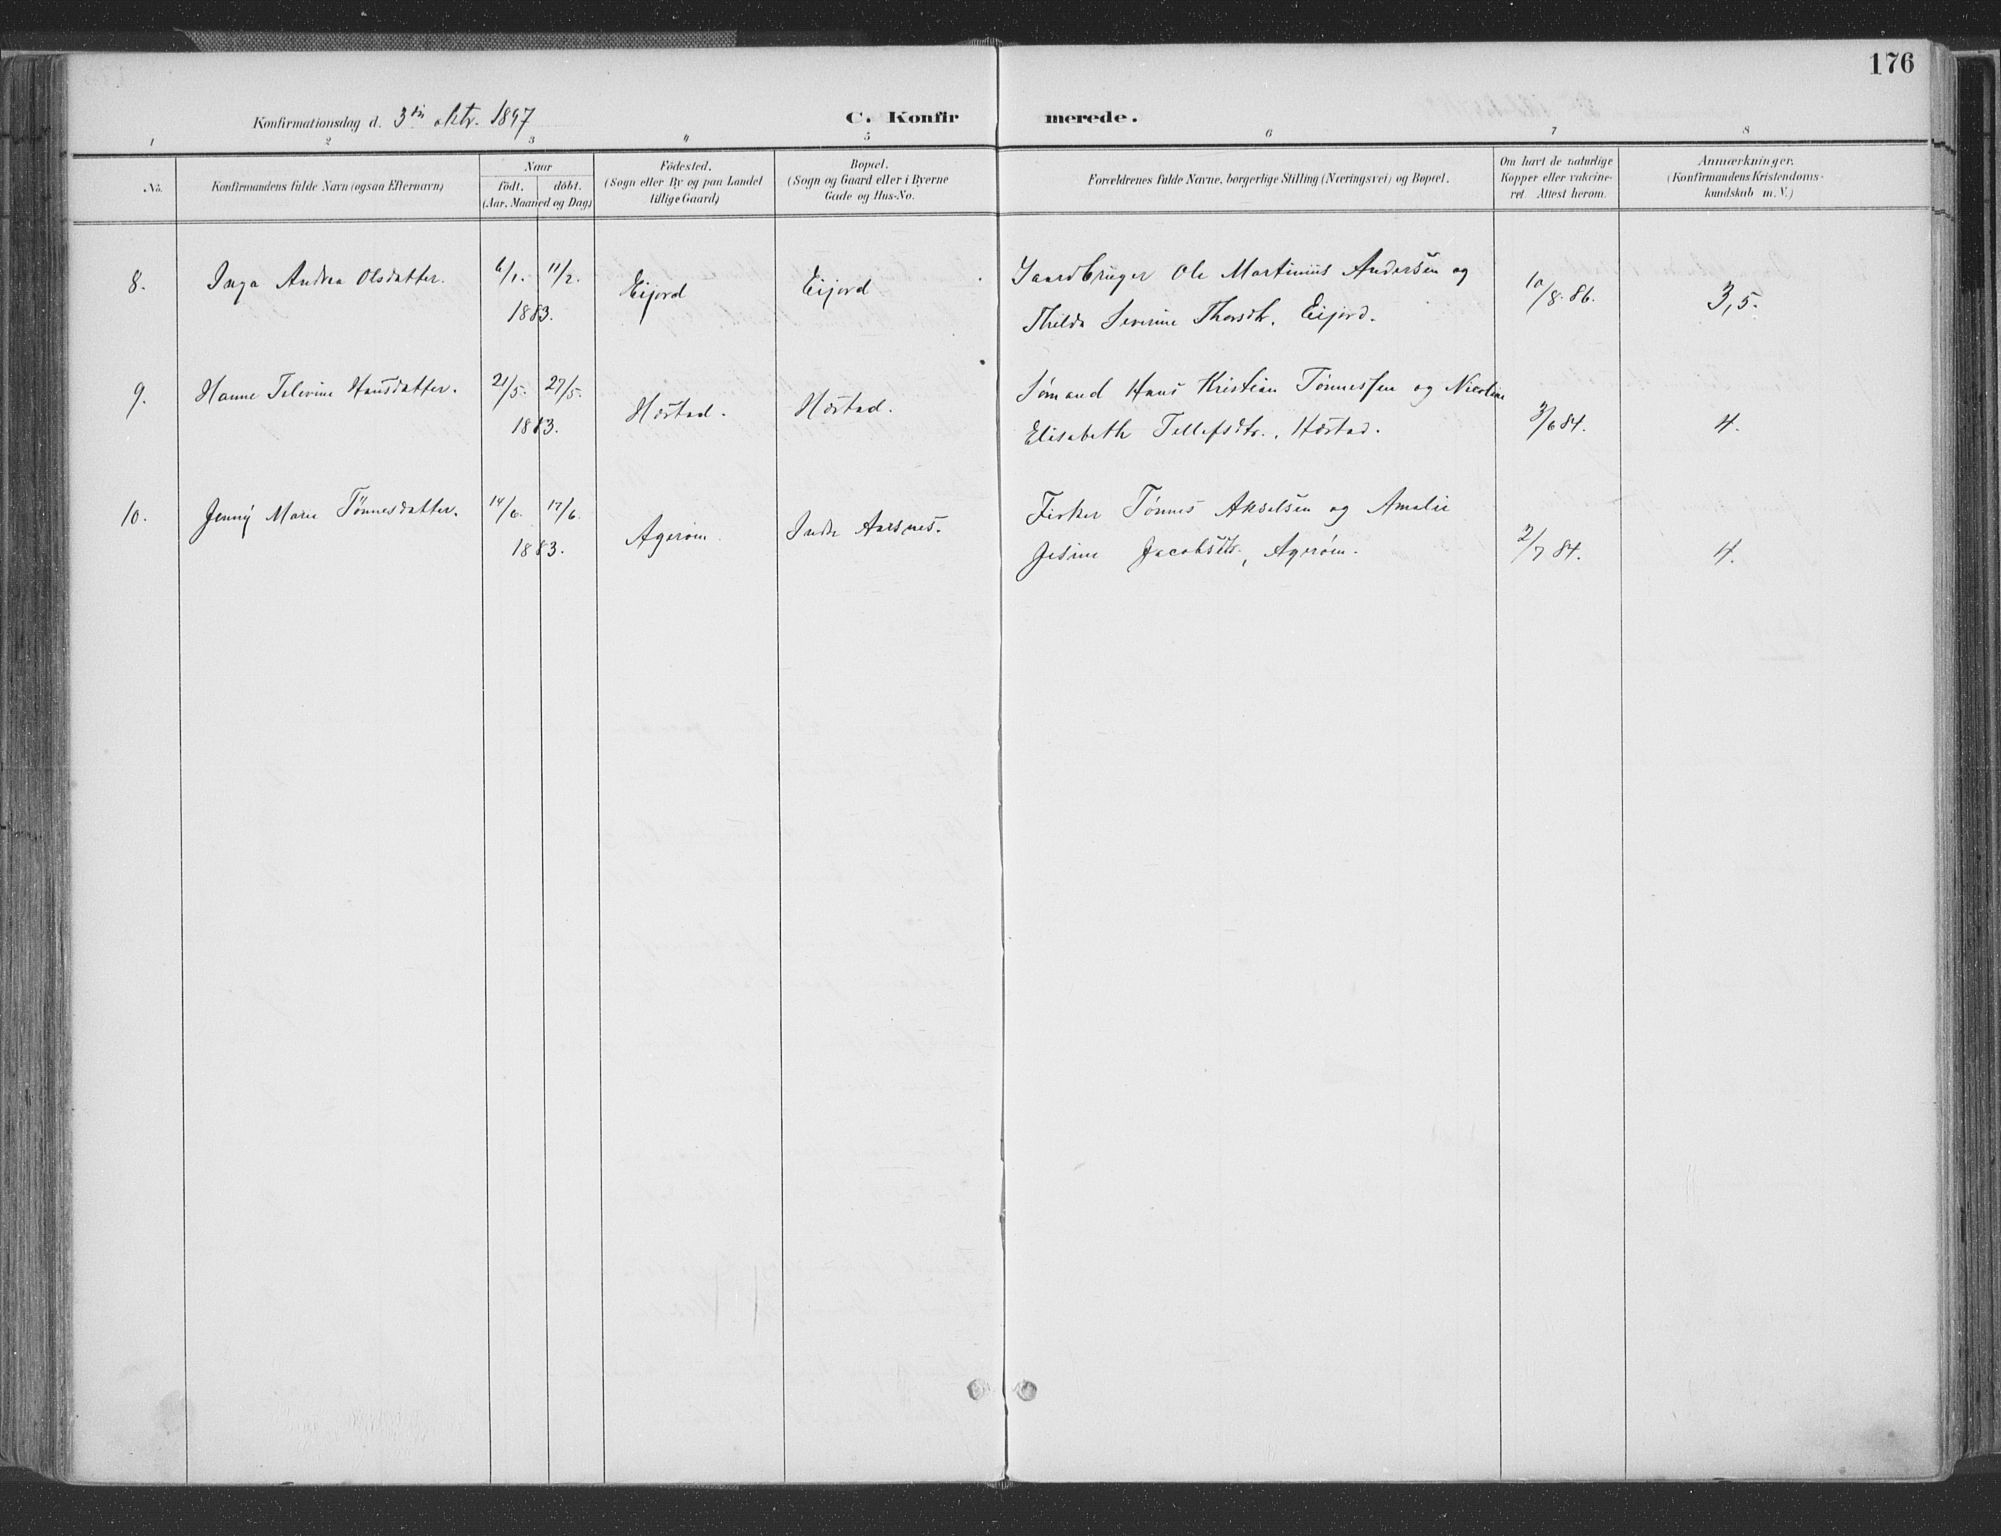 176
Konfirmationsdag d. 3die oktr. 1897
C. Konfirmerede.
1 2 3 4 5 6 7 8
No.
Konfirmandens fulde Navn (ogsaa Efternavn)
Naar
födt. döbt.
(Aar, Maaned og Dag)
Födested.
(Sogn eller By og paa Landet
tillige Gaard)
Bopæl.
(Sogn og Gaard eller i Byerne
Gade og Hus-No.
Forældrenes fulde Navne, borgerlige Stilling (Næringsvei) og Bopæl.
Om havt de naturlige
Kopper eller vakcine-
ret. Attest herom.
Anmærkninger.
(Konfirmandens Kristendoms-
kundskab m. V.)
8. Inga Andrea Olsdatter. 6/1. 11/2. 1883. Eijord Eijord
Gaardbruger Ole Martinius Andersen og
Thilda Severine Thorsdtr. Eijord.
10/8.86. 3,5.
9. Hanne Televine Hansdatter. 21/5. 27/5. 1883. Hæstad. Hæstad.
Sømand Hans Kristian Tønnessen og Nicoline
Elisabeth Tellefsdtr., Hæstad.
3/6 84. 4.
10. Jenny Marie Tönnesdatter. 14/6. 17/6. 1883. Ageröen. Indre Aarsnes.
Fisker Tønnes Akselsen og Amalie
Jesine Jacobsdtr., Agerøen.
2/7 84. 4.